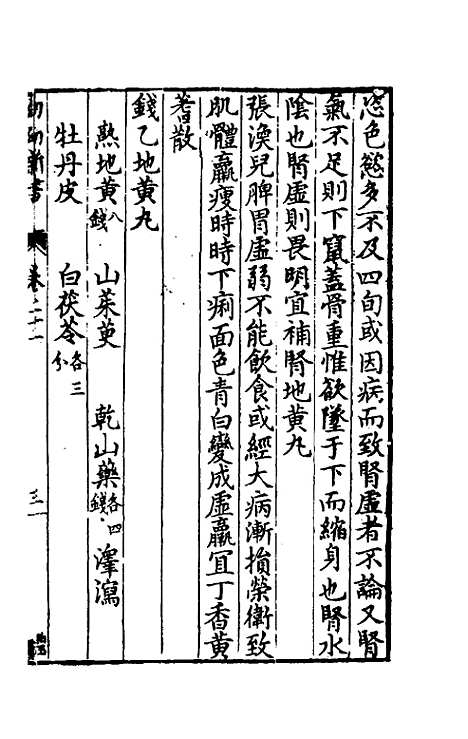 恣色慾多不及四旬或因病而致腎虛者不論又腎
氣不足則下竄蓋骨重惟欲墜于下而縮身也腎水
陰也腎虛則畏明宜補腎地黄丸
張渙兒脾胃虛弱不能飲食或經大病漸損榮衛致
肌體羸瘦時時下痢面色青白變成虛羸宜丁香黄
耆散
錢乙地黄丸
熟地黄八錢 山茱萸 乾山藥各四錢 澤瀉
牡丹皮 白茯苓各三分
幼幼新書 卷之二十一